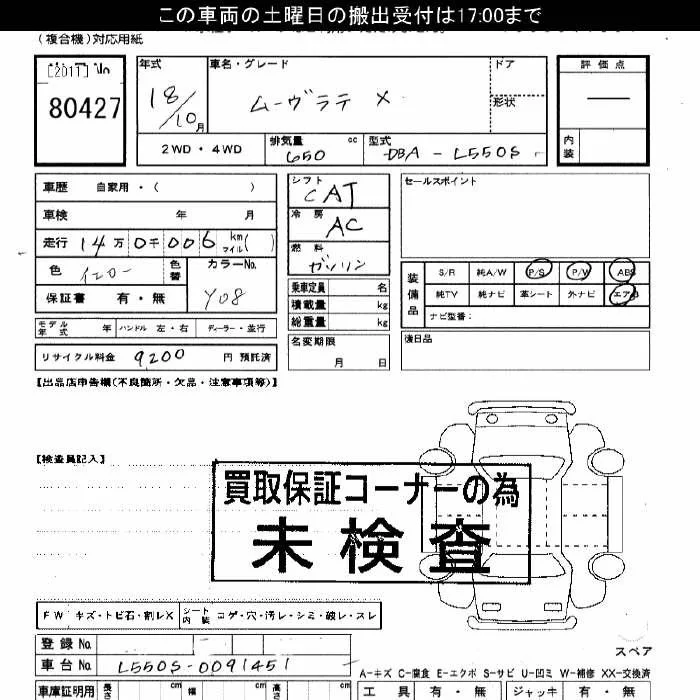 この車両の土曜日の搬出受付は17:00まで
(複合機)対応用紙
[2017] No
80427
年式
18/10月
車名・グレード
ムーヴラテ X
ドア
形状
評価点
—
内装
2WD・4WD
排気量 650 cc
型式 DBA - L550S
車歴 自家用・( )
車検 年 月
走行 14万0千006 km マイル( )
色 イエロー
色替
カラーNo. Y08
保証書 有・無
シフト CAT
冷房 AC
燃料 ガソリン
乗車定員 名
積載量 kg
総重量 kg
セールスポイント
装備品
S/R 純A/W P/S P/W ABS
純TV 純ナビ 革シート 外ナビ エアB
ナビ型番:
モデル年式 年 ハンドル 左・右 ディーラー・並行
名変期限 月 日
後日品
リサイクル料金 9200 円 預託済
【出品店申告欄(不良箇所・欠品・注意事項等)】
【検査員記入】
買取保証コーナーの為
未検査
FW キズ・トビ石・割レX
シート内装 コゲ・穴・汚レ・シミ・破レ・スレ
登録No.
車台No. L550S-0091451
スペア
A-キズ C-腐食 E-エクボ S-サビ U-凹ミ W-補修 XX-交換済
車庫証明用 長さ cm 幅 cm 高さ cm
工具 有・無 ジャッキ 有・無